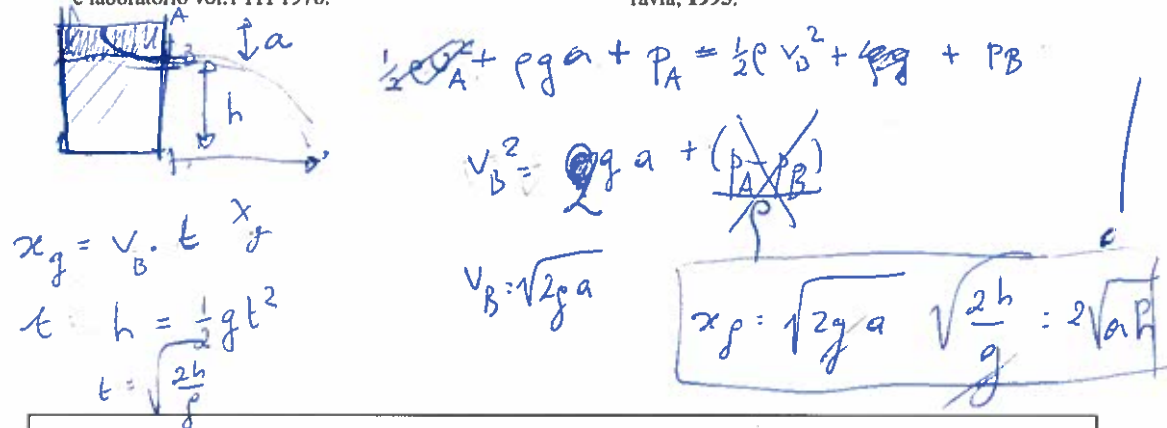 e laboratorio vol.1 111 1970.
ravia, 1995.
A
a
B
h
½ρv_A² + ρga + p_A = ½ρv_B² + ρg + p_B
v_B² = 2ga + (p_A - p_B)/ρ
x_g = v_B · t
v_B = √2ga
t : h = ½gt²
t = √2h/g
x_g = √2ga √2h/g = 2√ah